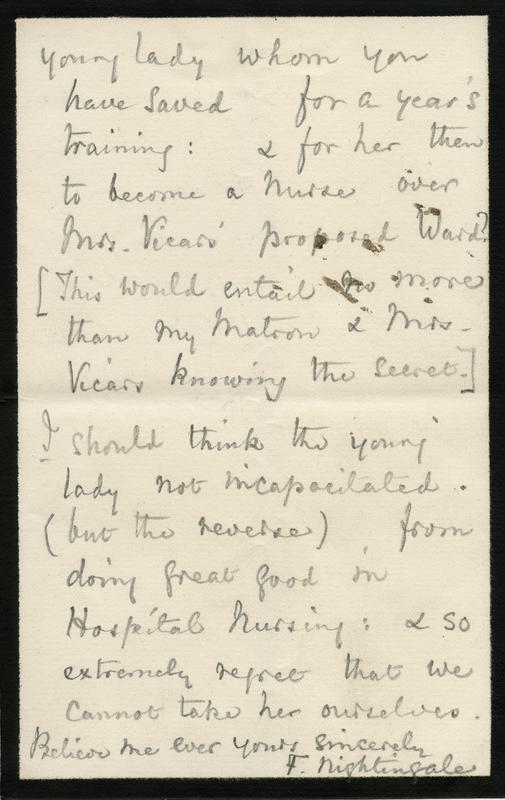 young lady whom you
have saved for a year's
training: & for her then
to become a Nurse over
Mrs. Vicars' proposed Ward?
[This would entail no more
than my Matron & Mrs.
Vicars knowing the secret.]
I should think the young
lady not incapacitated.
(but the reverse) from
doing great good in
Hospital Nursing: & so
extremely regret that we
cannot take her ourselves.
Believe me ever yours sincerely
F. Nightingale